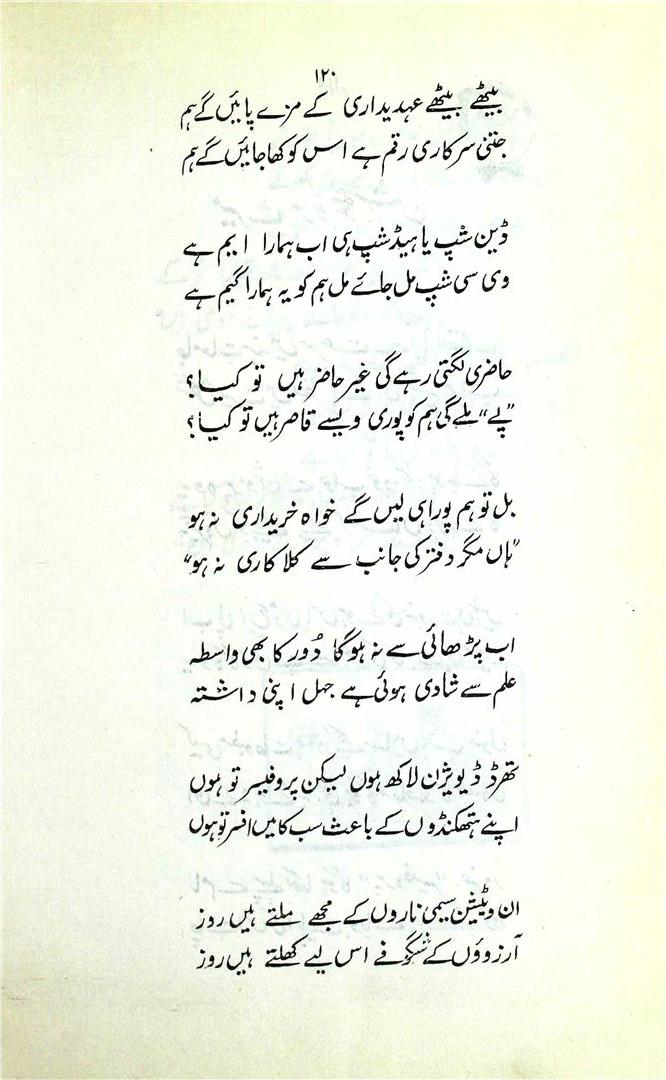 ۱۲۰
بیٹھے بیٹھے عہدیداری کے مزے پائیں گے ہم
جتنی سرکاری رقم ہے اس کو کھا جائیں گے ہم
ڈین شپ یا ہیڈ شپ ہی اب ہمارا ایم ہے
وی سی شپ مل جائے مل ہم کو یہ ہمارا گیم ہے
حاضری لگتی رہے گی غیر حاضر ہیں تو کیا؟
”پے“ ملے گی ہم کو پوری ویسے قاصر ہیں تو کیا؟
بل تو ہم پورا ہی لیں گے خواہ خریداری نہ ہو
”ہاں مگر دفتر کی جانب سے کلاکاری نہ ہو“
اب پڑھائی سے نہ ہوگا دُور کا بھی واسطہ
علم سے شادی ہوئی ہے جہل اپنی داشتہ
تھرڈ ڈیویژن لاکھ ہوں لیکن پروفیسر تو ہوں
اپنے ہتھکنڈوں کے باعث سب کا میں افسر تو ہوں
ان ویٹیشن سیمی ناروں کے مجھے ملتے ہیں روز
آرزوؤں کے شگوفے اس لیے کھلتے ہیں روز